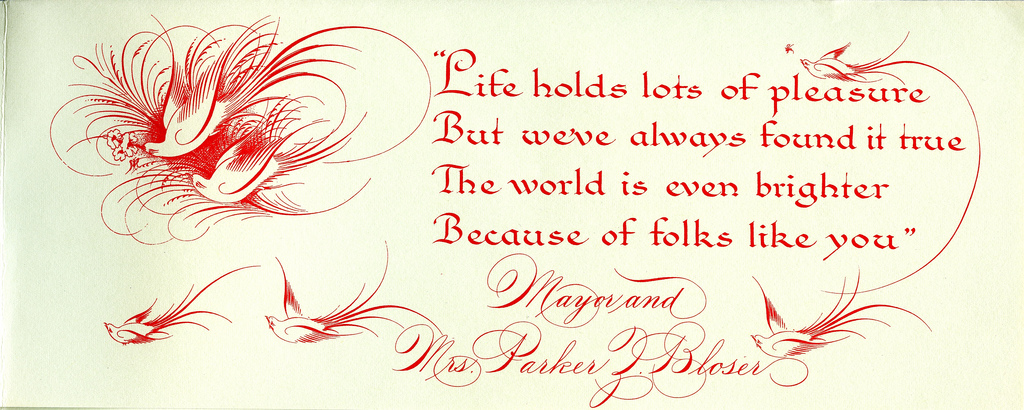 "Life holds lots of pleasure
But we've always found it true
The world is even brighter
Because of folks like you"
Mayor and
Mrs. Parker Z. Bloser